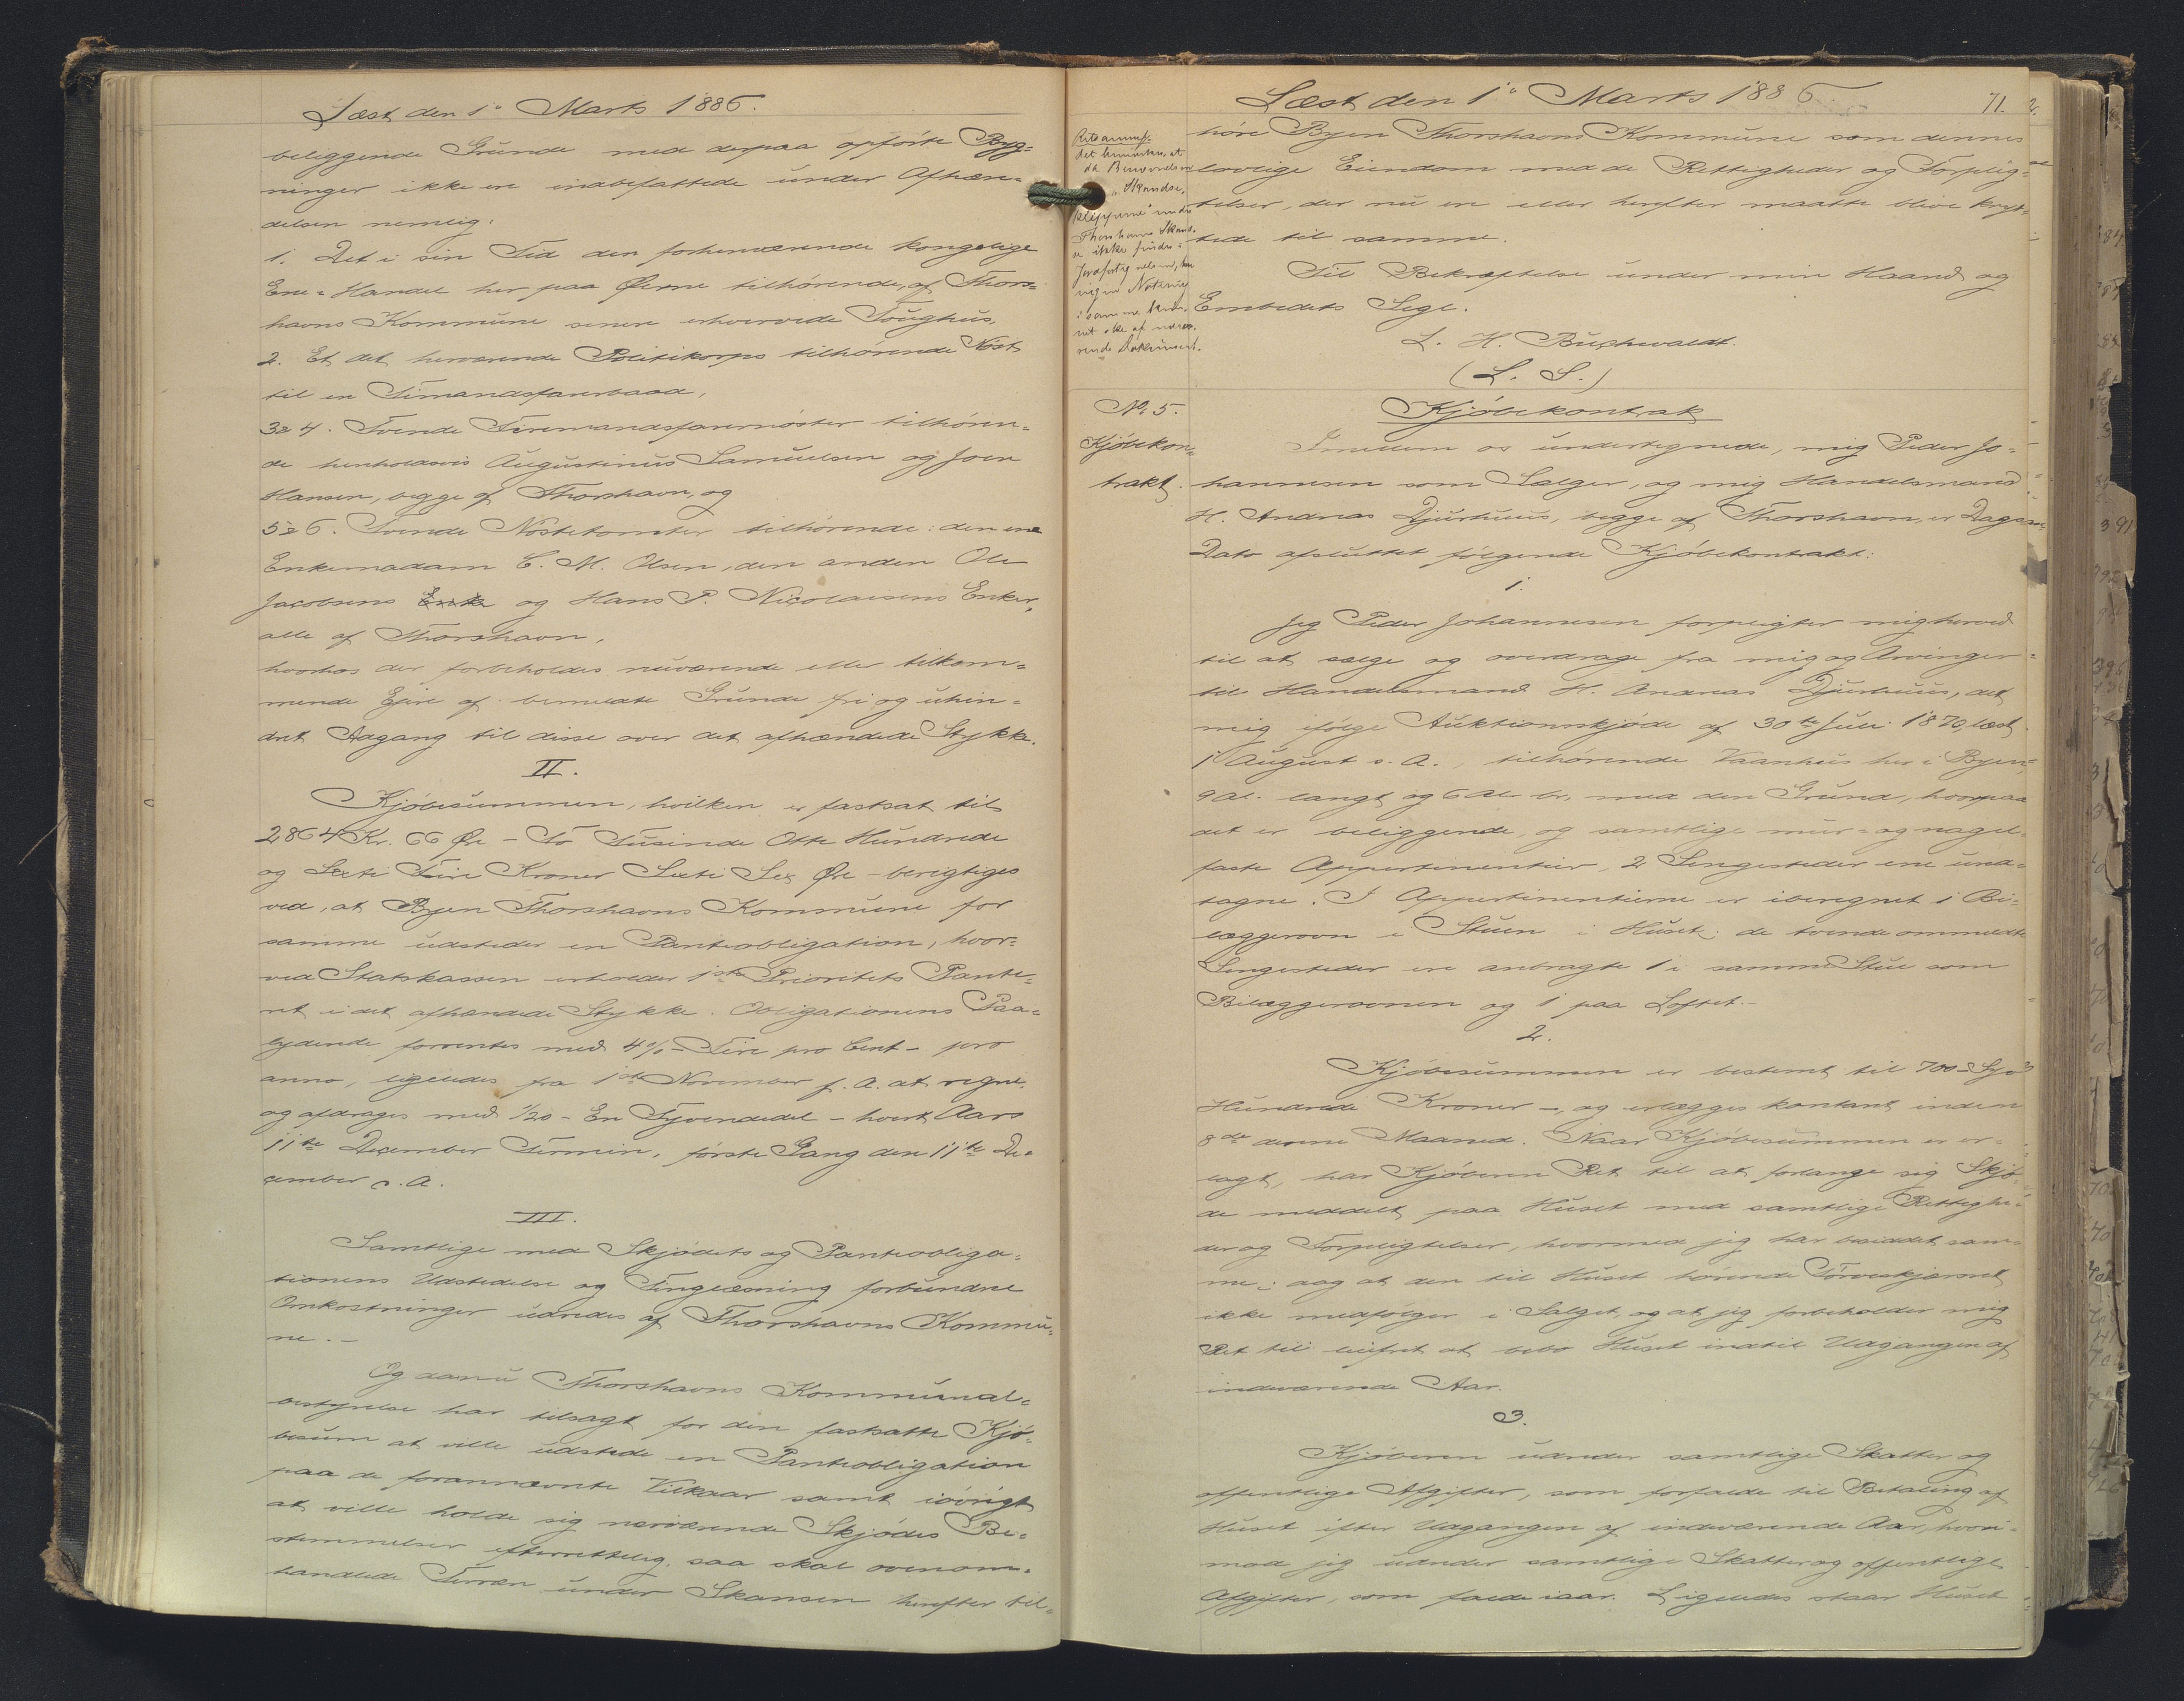 Læst den 1ͤ Marts 1886.
beliggende Grunde med derpaa opførte Byg=
ninger ikke ere indbefattede under Afhæn=
delsen nemlig:
1. Det i sin Tid den forhenværende kongelige
Ene=Handel her paa Øerne tilhørende, af Thors=
havns Kommune senere erhvervede Toughus,
2. Et det herværende Politikorps tilhørende Nøst
til en Timandsfarerbaad,
3 & 4. Tvende Firemandsfarernøster tilhøren=
de henholdsvis Augustinus Samuelsen og Joen
Hansen, begge af Thorshavn, og
5 & 6. Tvende Nøstetomter tilhørende: den ene
Enkemadam C. M. Olsen, den anden Ole
Jacobsens Enke og Hans P. Nicolaisens Enker,
alle af Thorshavn,
hvorhos der forbeholdes nuværende eller tilkom=
mende Ejere af bemeldte Grunde fri og uhin=
dret Adgang til disse over det afhændede Stykke.
II.
Kjøbesummen, hvilken er fastsat til
2864 Kr. 66 Øre - To Tusinde Otte Hundrede
og Sexti Fire Kroner Sexti Sex Øre - berigtiges
ved, at Byen Thorshavns Kommune for
samme udsteder en Panteobligation, hvor=
ved Statskassen erholder 1ste Prioritets Pante=
ret i det afhændede Stykke. Obligationens Paa=
lydende forrentes med 4% - Fire pro Cent - pro
anno, ligeledes fra 1ste November f. A. at regne,
og afdrages med 1/20 - En Tyvendedel - hvert Aars
11te December Termin, første Gang den 11te De=
cember d. A.
III.
Samtlige med Skjødets og Panteobliga=
tionens Udstedelse og Tinglæsning forbundne
Omkostninger udredes af Thorshavns Kommu=
ne. -
Og da nu Thorshavns Kommunal=
bestyrelse har tilsagt for den fastsatte Kjø=
besum at ville udstede en Panteobligation
paa de forannævnte Vilkaar samt iøvrigt
at ville holde sig nærværende Skjødes Be=
stemmelser efterrettelig, saa skal ovenom=
handlede Terræn under Skansen herefter til=
Læst den 1ͤ Marts 1886.
71.
høre Byen Thorshavns Kommune som dennes
lovlige Eiendom med de Rettigheder og Forplig=
telser, der nu ere eller herefter maatte blive knyt=
tede til samme.
Til Bekræftelse under min Haand og
Embedets Segl.
L. H. Buchwaldt.
(L. S.)
Retsanmrk.
Det bemærkes, at
da Benævnelsen
"Skandse,
klipperne" under
Thorshavns Skand=
se ikke findes i
Jordfortegnelsen, har
ingen Notering
i samme kun=
net ske af nærvæ=
rende Dokument.
No. 5.
Kjøbekon=
trakt.
Kjøbekontrakt
Imellem os undertegnede, mig Peder Jo=
hannesen som Sælger, og mig Handelsmand
H. Andreas Djurhuus, begge af Thorshavn, er Dags
Dato afsluttet følgende Kjøbekontrakt:
1.
Jeg Peder Johannesen forpligter mig herved
til at sælge og overdrage fra mig og Arvinger
til Handelsmand H. Andreas Djurhuus, det
mig ifølge Auktionsskjøde af 30te Juli 1870, læst
1 August s. A., tilhørende Vaanhus her i Byen,
9 Al. langt og 6 Al br. med den Grund, hvorpaa
det er beliggende, og samtlige mur= og nagel=
faste Appertinentier, 2 Sengesteder ere und=
tagne. I Appertinentierne er iberegnet 1 Bi=
læggerovn i Stuen i Huset; de tvende ommeldte
Sengesteder ere anbragte 1 i samme Stue som
Bilæggerovnen og 1 paa Loftet. -
2.
Kjøbesummen er bestemt til 700 - Syv
Hundrede Kroner -, og erlægges kontant inden
8de denne Maaned. Naar Kjøbesummen er er=
lagt, har Kjøberen Ret til at forlange sig Skjø=
de meddelt paa Huset med samtlige Rettighe=
der og Forpligtelser, hvormed jeg har besiddet sam=
me; dog at den til Huset hørende Tørveskjæring
ikke medfølger i Salget, og at jeg forbeholder mig
Ret til leiefrit at bebo Huset indtil Udgangen af
indeværende Aar.
3.
Kjøberen udreder samtlige Skatter og
offentlige Afgifter, som forfalde til Betaling af
Huset efter Udgangen af indeværende Aar, hvori=
mod jeg udreder samtlige Skatter og offentlige
Afgifter, som falde iaar. Ligeledes staar Huset